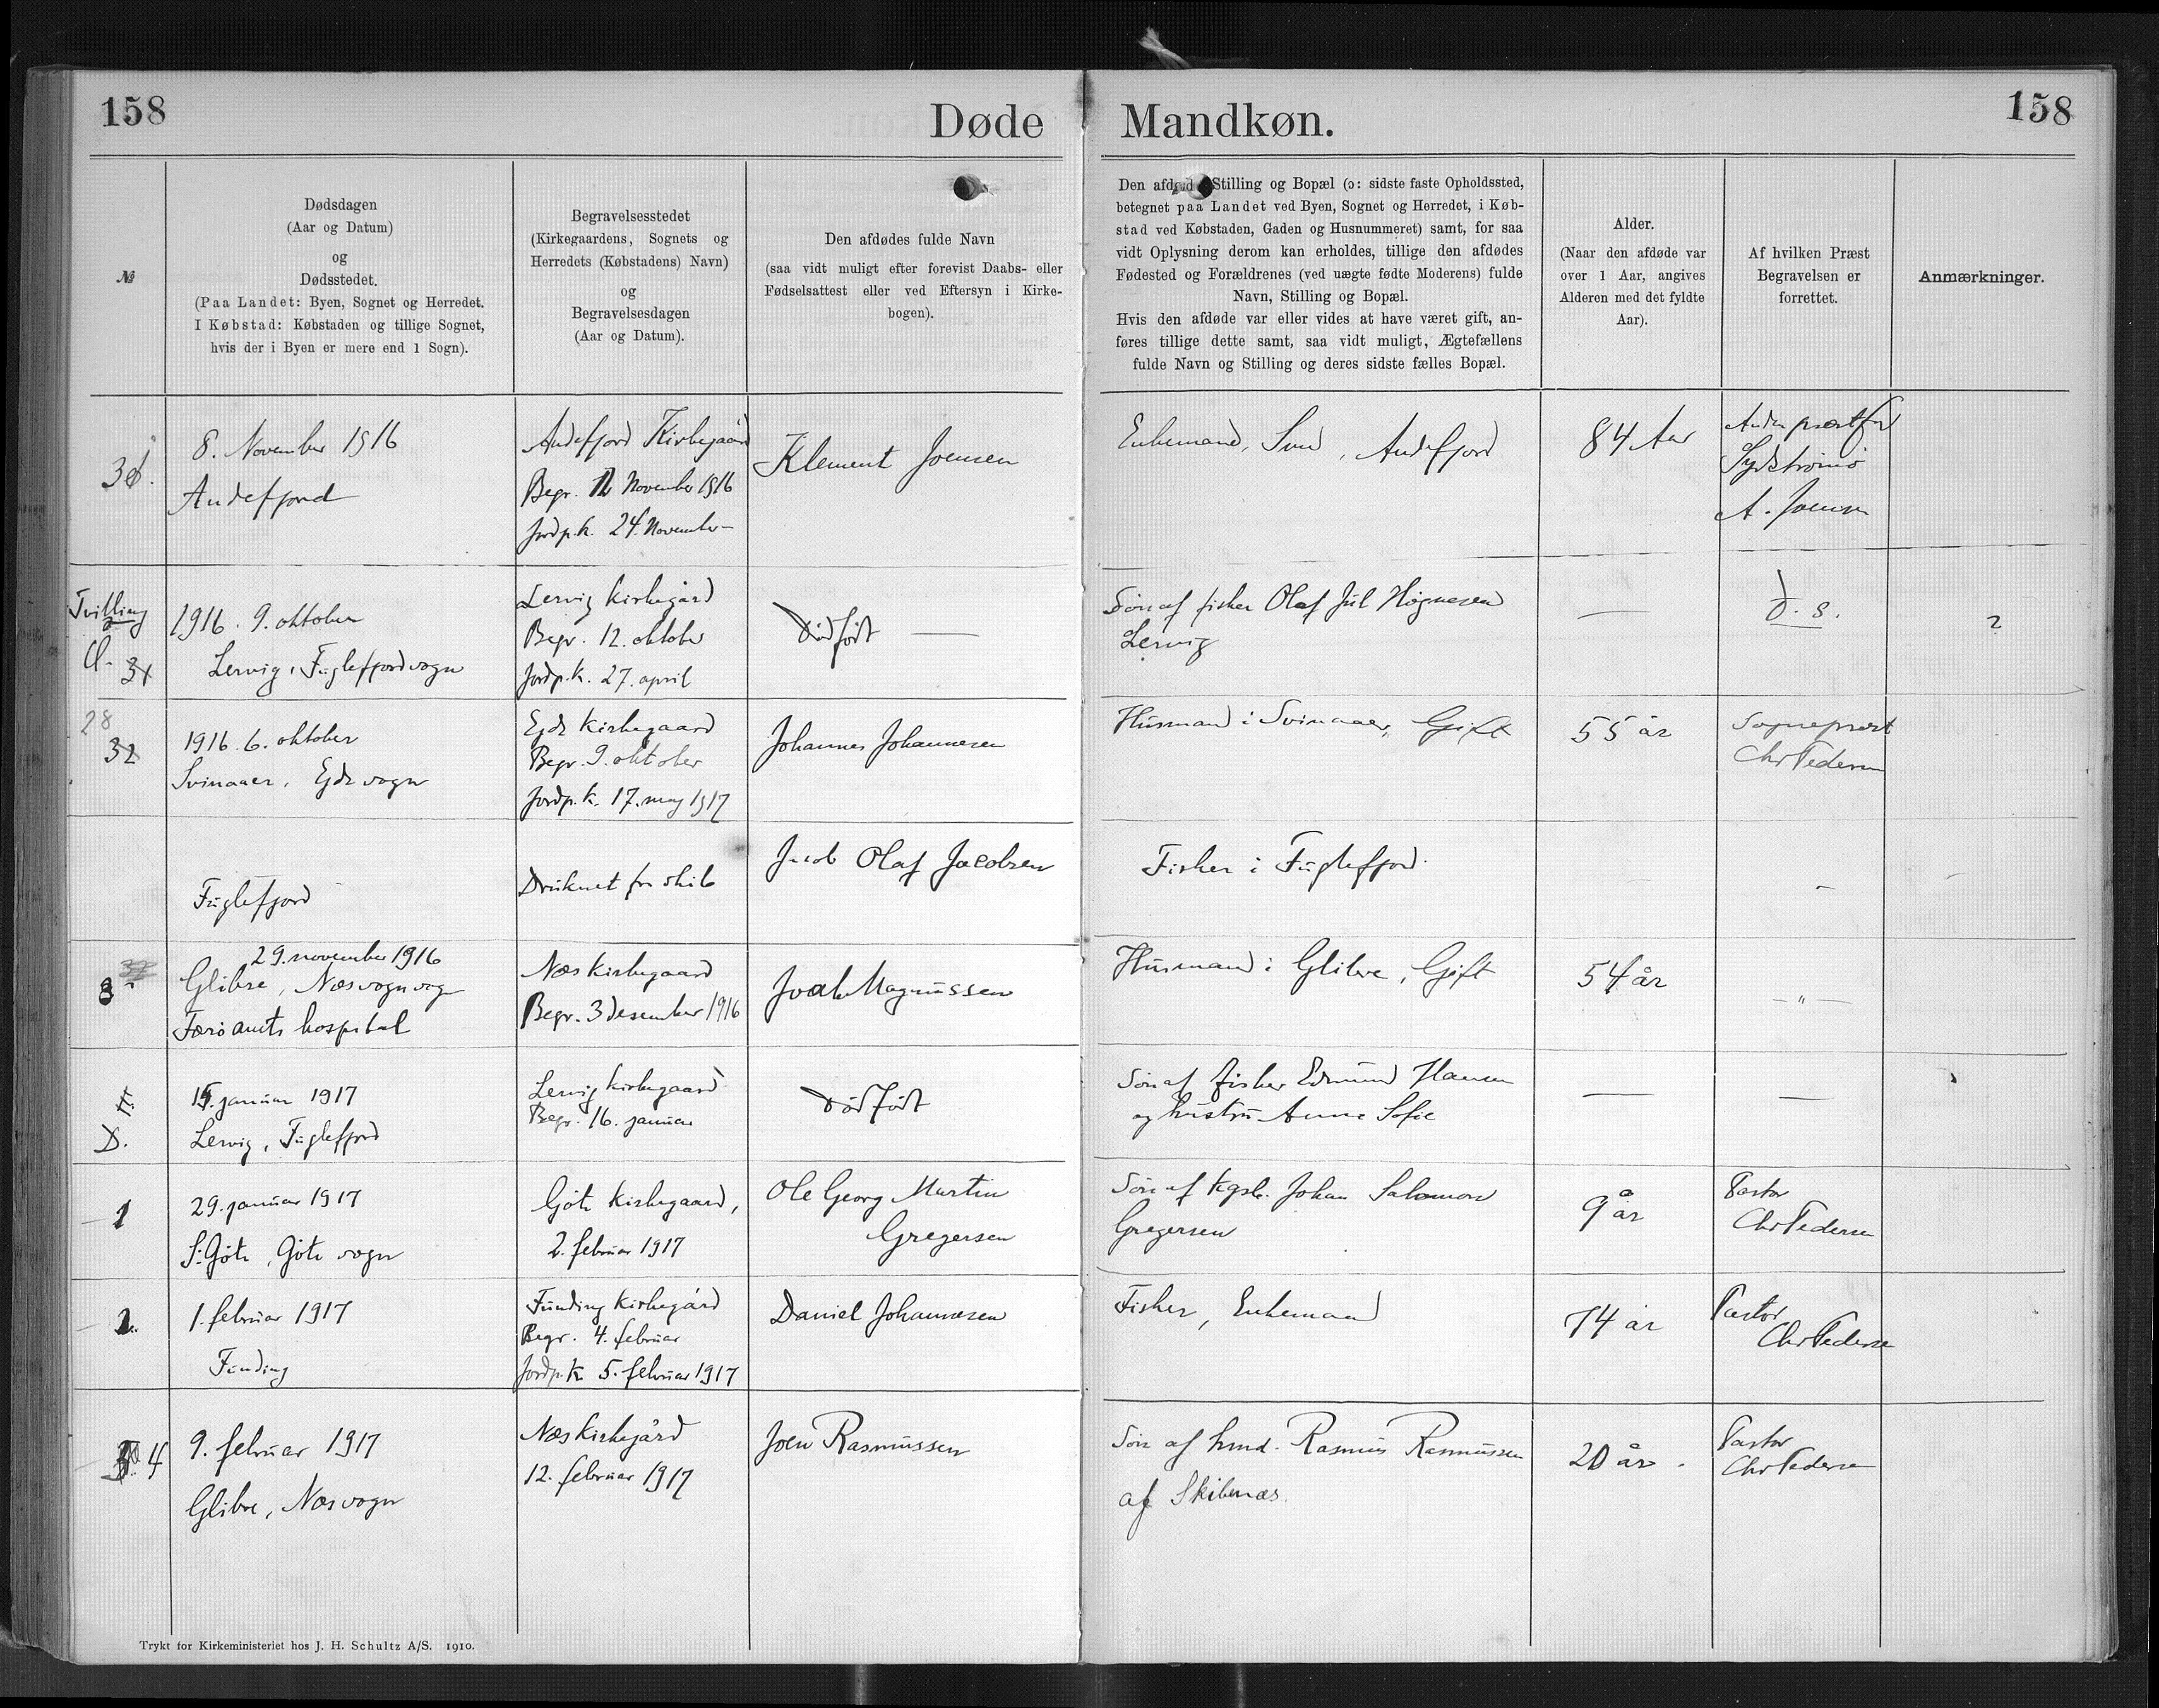 158
Døde
Mandkøn.
158
№
Dødsdagen
(Aar og Datum)
og
Dødsstedet.
(Paa Landet: Byen, Sognet og Herredet.
I Købstad: Købstaden og tillige Sognet,
hvis der i Byen er mere end 1 Sogn).
Begravelsesstedet
(Kirkegaardens, Sognets og
Herredets (Købstadens) Navn)
og
Begravelsesdagen
(Aar og Datum).
Den afdødes fulde Navn
(saa vidt muligt efter forevist Daabs- eller
Fødselsattest eller ved Eftersyn i Kirke-
bogen).
Den afdødes Stilling og Bopæl (ɔ: sidste faste Opholdssted,
betegnet paa Landet ved Byen, Sognet og Herredet, i Køb-
stad ved Købstaden, Gaden og Husnummeret) samt, for saa
vidt Oplysning derom kan erholdes, tillige den afdødes
Fødested og Forældrenes (ved uægte fødte Moderens) fulde
Navn, Stilling og Bopæl.
Hvis den afdøde var eller vides at have været gift, an-
føres tillige dette samt, saa vidt muligt, Ægtefællens
fulde Navn og Stilling og deres sidste fælles Bopæl.
Alder.
(Naar den afdøde var
over 1 Aar, angives
Alderen med det fyldte
Aar).
Af hvilken Præst
Begravelsen er
forrettet.
Anmærkninger.
8. November 1916
Andefjord
Andefjord Kirkegaard
Begr. 12 November 1916
Jordp.k. 24. November
Klement Joensen
Enkemand, Sund, Andefjord
84 Aar
Sydstrømø
A. Joensen
Tvilling
31
1916. 9. oktober
Lervig, Fuglefjord sogn
Lervig kirkegård
Begr. 12. oktober
Jordp.k. 27. april
Dødfødt —
Søn af fisker Olaf Jul Høgnesen
Lervig
—
D. s.
28
32
1916. 6. oktober
Svinaaer, Ejde sogn
Ejde kirkegaard
Begr. 9. oktober
Jordp.k. 17. maj 1917
Johannes Johannesen
Husmand i Svinaaer, Gift
55 år
Sognepræst
Chr Pedersen
Fuglefjord
Druknet fra skib
Jacob Olaf Jacobsen
Fisker i Fuglefjord.
29. november 1916
Glibre, Næs sogn
Færø amts hospital
Næs kirkegaard
Begr. 3 desember 1916
Magnussen
Husmand i Glibre, Gift
54 år
— " —
D.
15. januar 1917
Lervig, Fuglefjord
Lervig kirkegaard
Begr. 16. januar
Dødfødt
Søn af fisker Edmund Hansen
og hustru Anna Sofie
—
—
1
29. januar 1917
S: Gøte, Gøte sogn
Gøte kirkegaard,
2. februar 1917
Ole Georg Martin
Gregersen
Søn af kgsb. Johan Salomon
Gregersen
9 år
Pastor
Chr Pedersen
2.
1. februar 1917
Funding
Funding kirkegård
Begr. 4. februar
Jordp.k. 5. februar 1917
Daniel Johannesen
Fisker, Enkemand
74 år
Pastor
Chr Pedersen
4
9. februar 1917
Glibre, Næs sogn
Næs kirkegård
12. februar 1917
Joen Rasmussen
Søn af hmd. Rasmus Rasmussen
af Skibenæs.
20 år.
Pastor
Chr Pedersen
Trykt for Kirkeministeriet hos J. H. Schultz A/S. 1910.